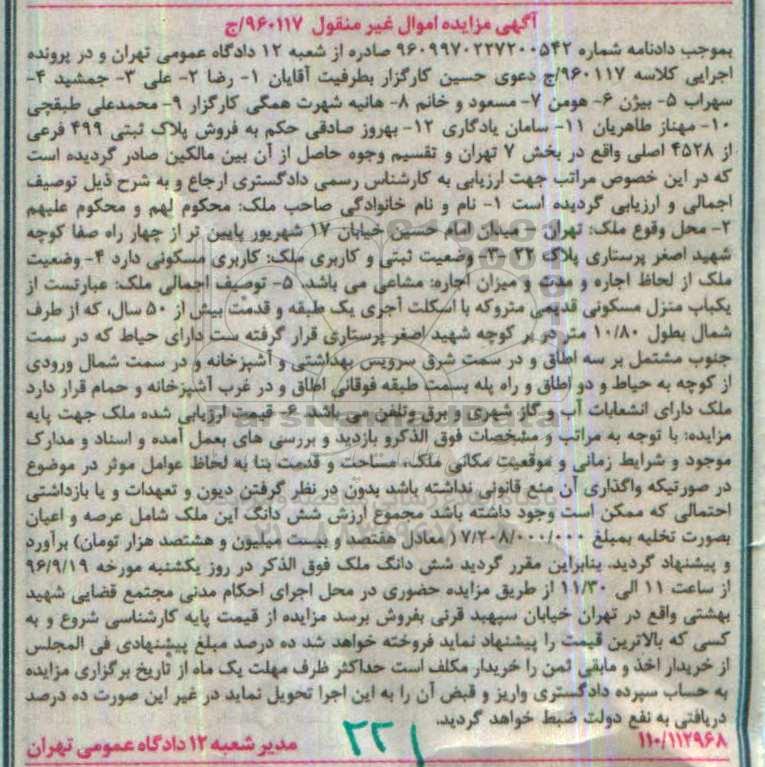 آگهی مزایده اموال غیر منقول ۹۶۰۱۱۷/ج
بموجب دادنامه شماره ۹۶۰۹۹۷۰۲۲۷۲۰۰۵۴۲ صادره از شعبه ۱۲ دادگاه عمومی تهران و در پرونده
اجرایی کلاسه ۹۶۰۱۱۷/ج دعوی حسین کارگزار بطرفیت آقایان ۱- رضا ۲- علی ۳- جمشید ۴-
سهراب ۵- بیژن ۶- هومن ۷- مسعود و خانم ۸- هانیه شهرت همگی کارگزار ۹- محمدعلی طبقچی
۱۰- مهناز طاهریان ۱۱- سامان یادگاری ۱۲- بهروز صادقی حکم به فروش پلاک ثبتی ۴۹۹ فرعی
از ۴۵۲۸ اصلی واقع در بخش ۷ تهران و تقسیم وجوه حاصل از آن بین مالکین صادر گردیده است
که در این خصوص مراتب جهت ارزیابی به کارشناس رسمی دادگستری ارجاع و به شرح ذیل توصیف
اجمالی و ارزیابی گردیده است ۱- نام و نام خانوادگی صاحب ملک: محکوم لهم و محکوم علیهم
۲- محل وقوع ملک: تهران - میدان امام حسین خیابان ۱۷ شهریور پایین تر از چهار راه صفا کوچه
شهید اصغر پرستاری پلاک ۲۲ ۳- وضعیت ثبتی و کاربری ملک: کاربری مسکونی دارد ۴- وضعیت
ملک از لحاظ اجاره و مدت و میزان اجاره: مشاعی می باشد. ۵- توصیف اجمالی ملک: عبارتست از
یکباب منزل مسکونی قدیمی متروکه با اسکلت آجری یک طبقه و قدمت بیش از ۵۰ سال، که از طرف
شمال بطول ۱۰/۸۰ متر در بر کوچه شهید اصغر پرستاری قرار گرفته ست دارای حیاط که در سمت
جنوب مشتمل بر سه اطاق و در سمت شرق سرویس بهداشتی و آشپزخانه و در سمت شمال ورودی
از کوچه به حیاط و دو اطاق و راه پله بسمت طبقه فوقانی اطاق و در غرب آشپزخانه و حمام قرار دارد
ملک دارای انشعابات آب و گاز شهری و برق وتلفن می باشد. ۶- قیمت ارزیابی شده ملک جهت پایه
مزایده: با توجه به مراتب و مشخصات فوق الذکرو بازدید و بررسی های بعمل آمده و اسناد و مدارک
موجود و شرایط زمانی و موقعیت مکانی ملک، مساحت و قدمت بنا به لحاظ عوامل موثر در موضوع
در صورتیکه واگذاری آن منع قانونی نداشته باشد بدون در نظر گرفتن دیون و تعهدات و یا بازداشتی
احتمالی که ممکن است وجود داشته باشد مجموع ارزش شش دانگ این ملک شامل عرصه و اعیان
بصورت تخلیه بمبلغ ۷/۲۰۸/۰۰۰/۰۰۰ ( معادل هفتصد و بیست میلیون و هشتصد هزار تومان) برآورد
و پیشنهاد گردید. بنابراین مقرر گردید شش دانگ ملک فوق الذکر در روز یکشنبه مورخه ۹۶/۹/۱۹
از ساعت ۱۱ الی ۱۱/۳۰ از طریق مزایده حضوری در محل اجرای احکام مدنی مجتمع قضایی شهید
بهشتی واقع در تهران خیابان سپهبد قرنی بفروش برسد مزایده از قیمت پایه کارشناسی شروع و به
کسی که بالاترین قیمت را پیشنهاد نماید فروخته خواهد شد ده درصد مبلغ پیشنهادی فی المجلس
از خریدار اخذ و مابقی ثمن را خریدار مکلف است حداکثر ظرف مهلت یک ماه از تاریخ برگزاری مزایده
به حساب سپرده دادگستری واریز و قبض آن را به این اجرا تحویل نماید در غیر این صورت ده درصد
دریافتی به نفع دولت ضبط خواهد گردید.
۱۱۰/۱۱۲۹۶۸ مدیر شعبه ۱۲ دادگاه عمومی تهران
۲۲۱